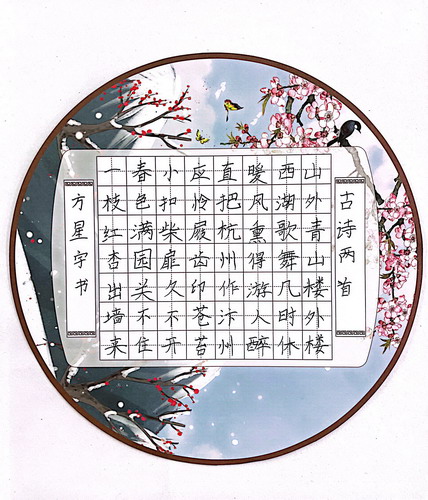 古诗两首
山外青山楼外楼
西湖歌舞几时休
暖风熏得游人醉
直把杭州作汴州
应怜屐齿印苍苔
小扣柴扉久不开
春色满园关不住
一枝红杏出墙来
方星宇书